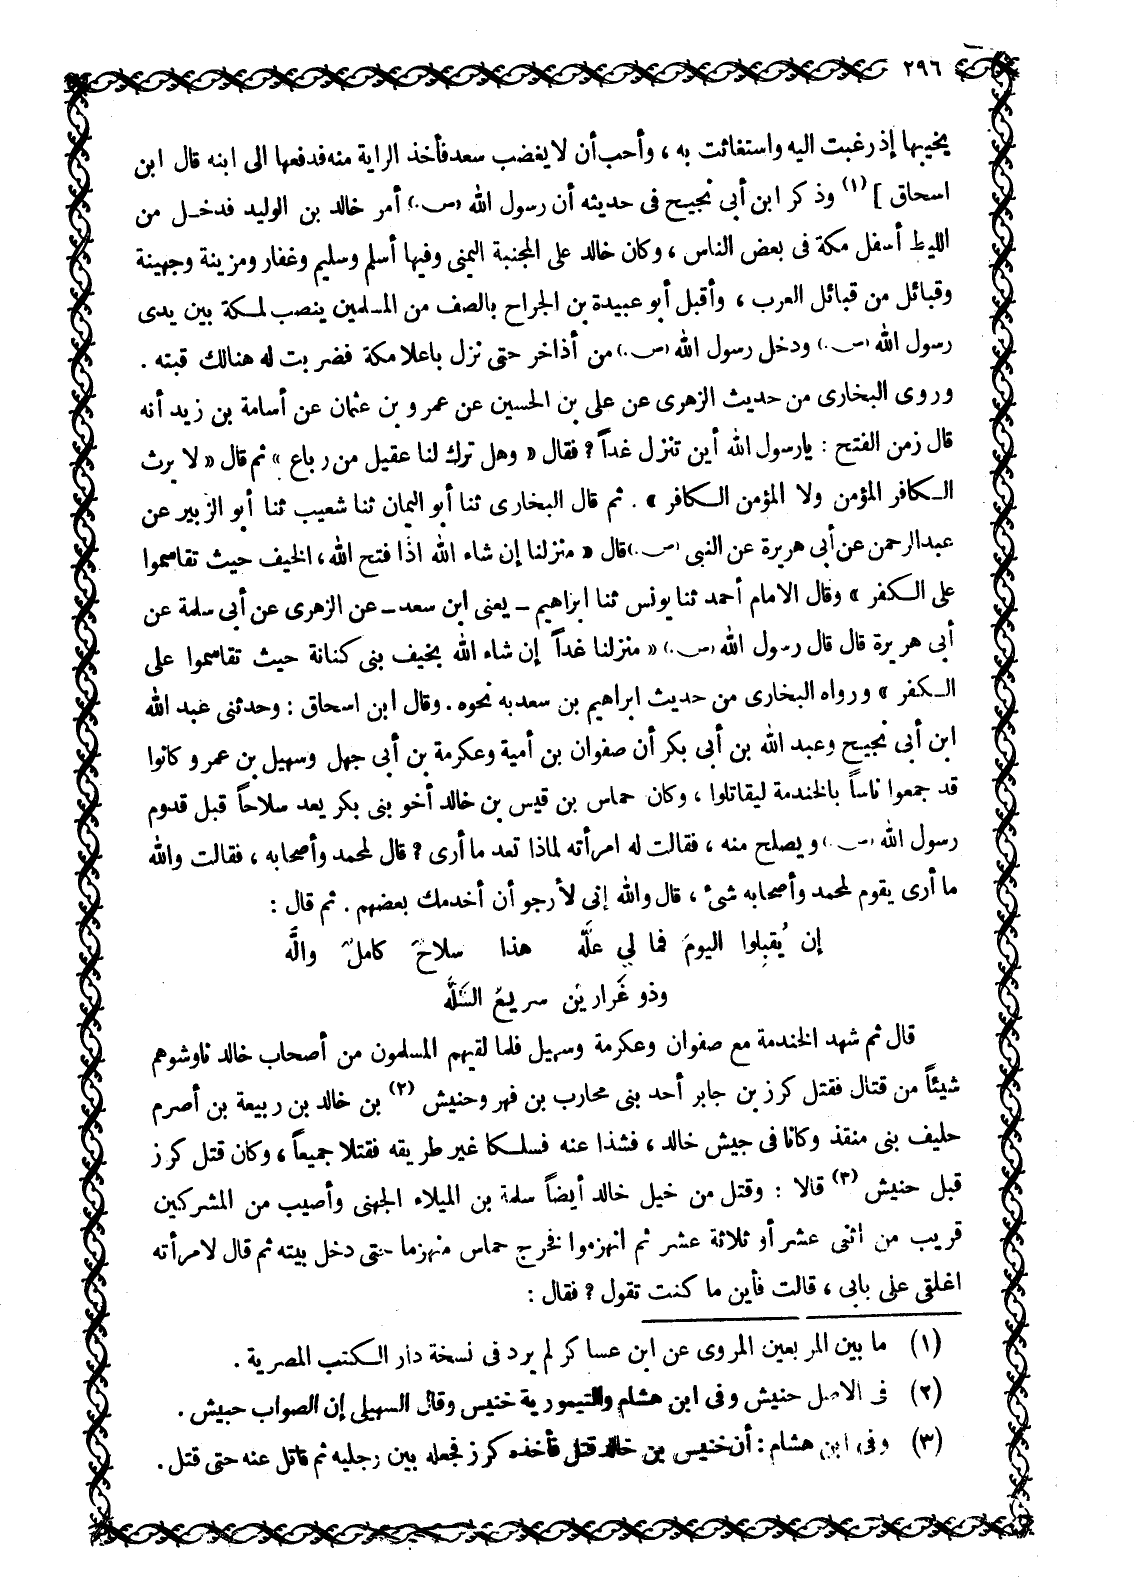 ٢٩٦
يخيبها إذ رغبت اليه واستغاثت به ، وأحب أن لا يغضب سعد فأخذ الراية منه فدفعها الى ابنه قال ابن
اسحاق ] (١) وذكر ابن أبى نجيح فى حديثه أن رسول الله (ص.) أمر خالد بن الوليد فدخل من
الليط أسفل مكة فى بعض الناس ، وكان خالد على المجنبة اليمنى وفيها أسلم وسليم وغفار ومزينة وجهينة
وقبائل من قبائل العرب ، وأقبل أبو عبيدة بن الجراح بالصف من المسلمين ينصب لمكة بين يدى
رسول الله (ص.) ودخل رسول الله (ص.) من أذاخر حتى نزل باعلا مكة فضربت له هنالك قبته .
وروى البخارى من حديث الزهرى عن على بن الحسين عن عمرو بن عثمان عن أسامة بن زيد أنه
قال زمن الفتح : يارسول الله أين تنزل غداً ؟ فقال « وهل ترك لنا عقيل من رباع » ثم قال « لا يرث
الكافر المؤمن ولا المؤمن الكافر » . ثم قال البخارى ثنا أبو اليمان ثنا شعيب ثنا أبو الزبير عن
عبدالرحمن عن أبى هريرة عن النبى (ص.) قال « منزلنا إن شاء الله اذا فتح الله ، الخيف حيث تقاسموا
على الكفر » وقال الامام أحمد ثنا يونس ثنا ابراهيم - يعنى ابن سعد - عن الزهرى عن أبى سلمة عن
أبى هريرة قال قال رسول الله (ص.) « منزلنا غداً إن شاء الله بخيف بنى كنانة حيث تقاسموا على
الكفر » ورواه البخارى من حديث ابراهيم بن سعد به نحوه . وقال ابن اسحاق : وحدثنى عبد الله
ابن أبى نجيح وعبد الله بن أبى بكر أن صفوان بن أمية وعكرمة بن أبى جهل وسهيل بن عمرو كانوا
قد جمعوا ناساً بالخندمة ليقاتلوا ، وكان حماس بن قيس بن خالد أخو بنى بكر يعد سلاحاً قبل قدوم
رسول الله (ص.) ويصلح منه ، فقالت له امرأته لماذا تعد ما أرى ؟ قال لمحمد وأصحابه ، فقالت والله
ما أرى يقوم لمحمد وأصحابه شئ ، قال والله إنى لأرجو أن أخدمك بعضهم . ثم قال :
إن يُقبِلوا اليومَ فما لي عِلَّه هذا سلاحٌ كاملٌ وألَّه
وذو غَرارين سريع السَّلَّه
قال ثم شهد الخندمة مع صفوان وعكرمة وسهيل فلما لقيهم المسلمون من أصحاب خالد ناوشوهم
شيئاً من قتال فقتل كرز بن جابر أحد بنى محارب بن فهر وحنيش (٢) بن خالد بن ربيعة بن أصرم
حليف بنى منقذ وكانا فى جيش خالد ، فشذا عنه فسلكا غير طريقه فقتلا جميعاً ، وكان قتل كرز
قبل حنيش (٣) قالا : وقتل من خيل خالد أيضاً سلمة بن الميلاء الجهنى وأصيب من المشركين
قريب من اثنى عشر أو ثلاثة عشر ثم انهزموا فخرج حماس منهزما حتى دخل بيته ثم قال لامرأته
اغلقى على بابى ، قالت فأين ما كنت تقول ؟ فقال :
(١) ما بين المربعين المروى عن ابن عساكر لم يرد فى نسخة دار الكتب المصرية .
(٢) فى الاصل حنيش وفى ابن هشام والتيمورية خنيس وقال السهيلى إن الصواب حبيش .
(٣) وفى ابن هشام : أن خنيس بن خالد قتل فأخذه كرز فجعله بين رجليه ثم قاتل عنه حتى قتل .